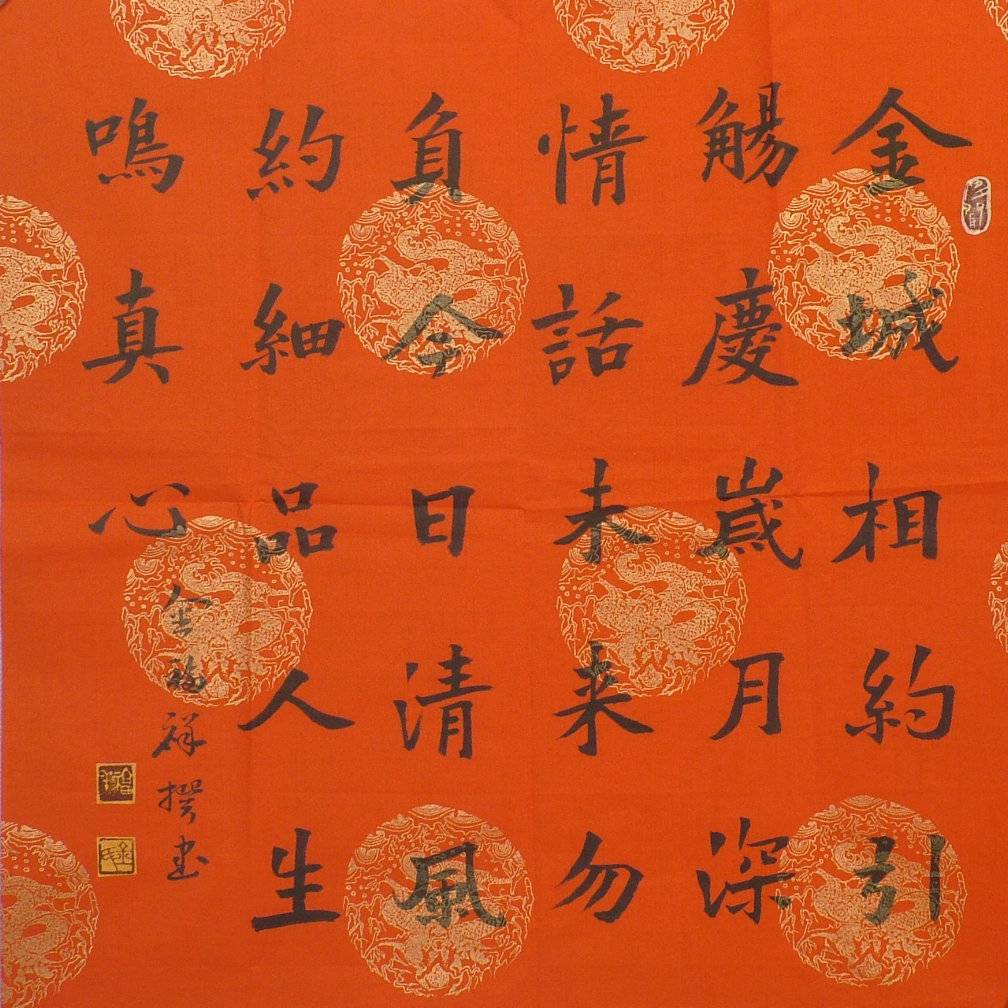 金城相約引
觴慶歲月深
情話未来勿
負今日清風
約細品人生
鳴真心
金福祥撰书